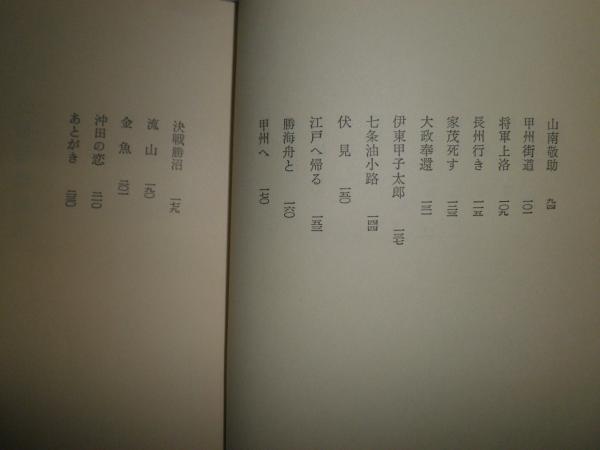 山南敬助 九四
甲州街道 一〇一
将軍上洛 一〇九
長州行き 一一五
家茂死す 一二三
大政奉還 一三一
伊東甲子太郎 一三七
七条油小路 一四四
伏見 一五〇
江戸へ帰る 一五三
勝海舟と 一六〇
甲州へ 一七〇
決戦勝沼 一七九
流山 一九〇
金魚 二〇一
沖田の恋 二一〇
あとがき 二三〇